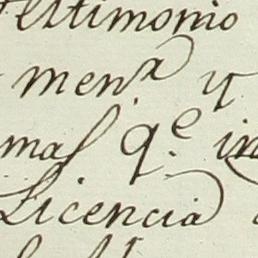 testimonio
men.ª y
mas q.e in
Licencia